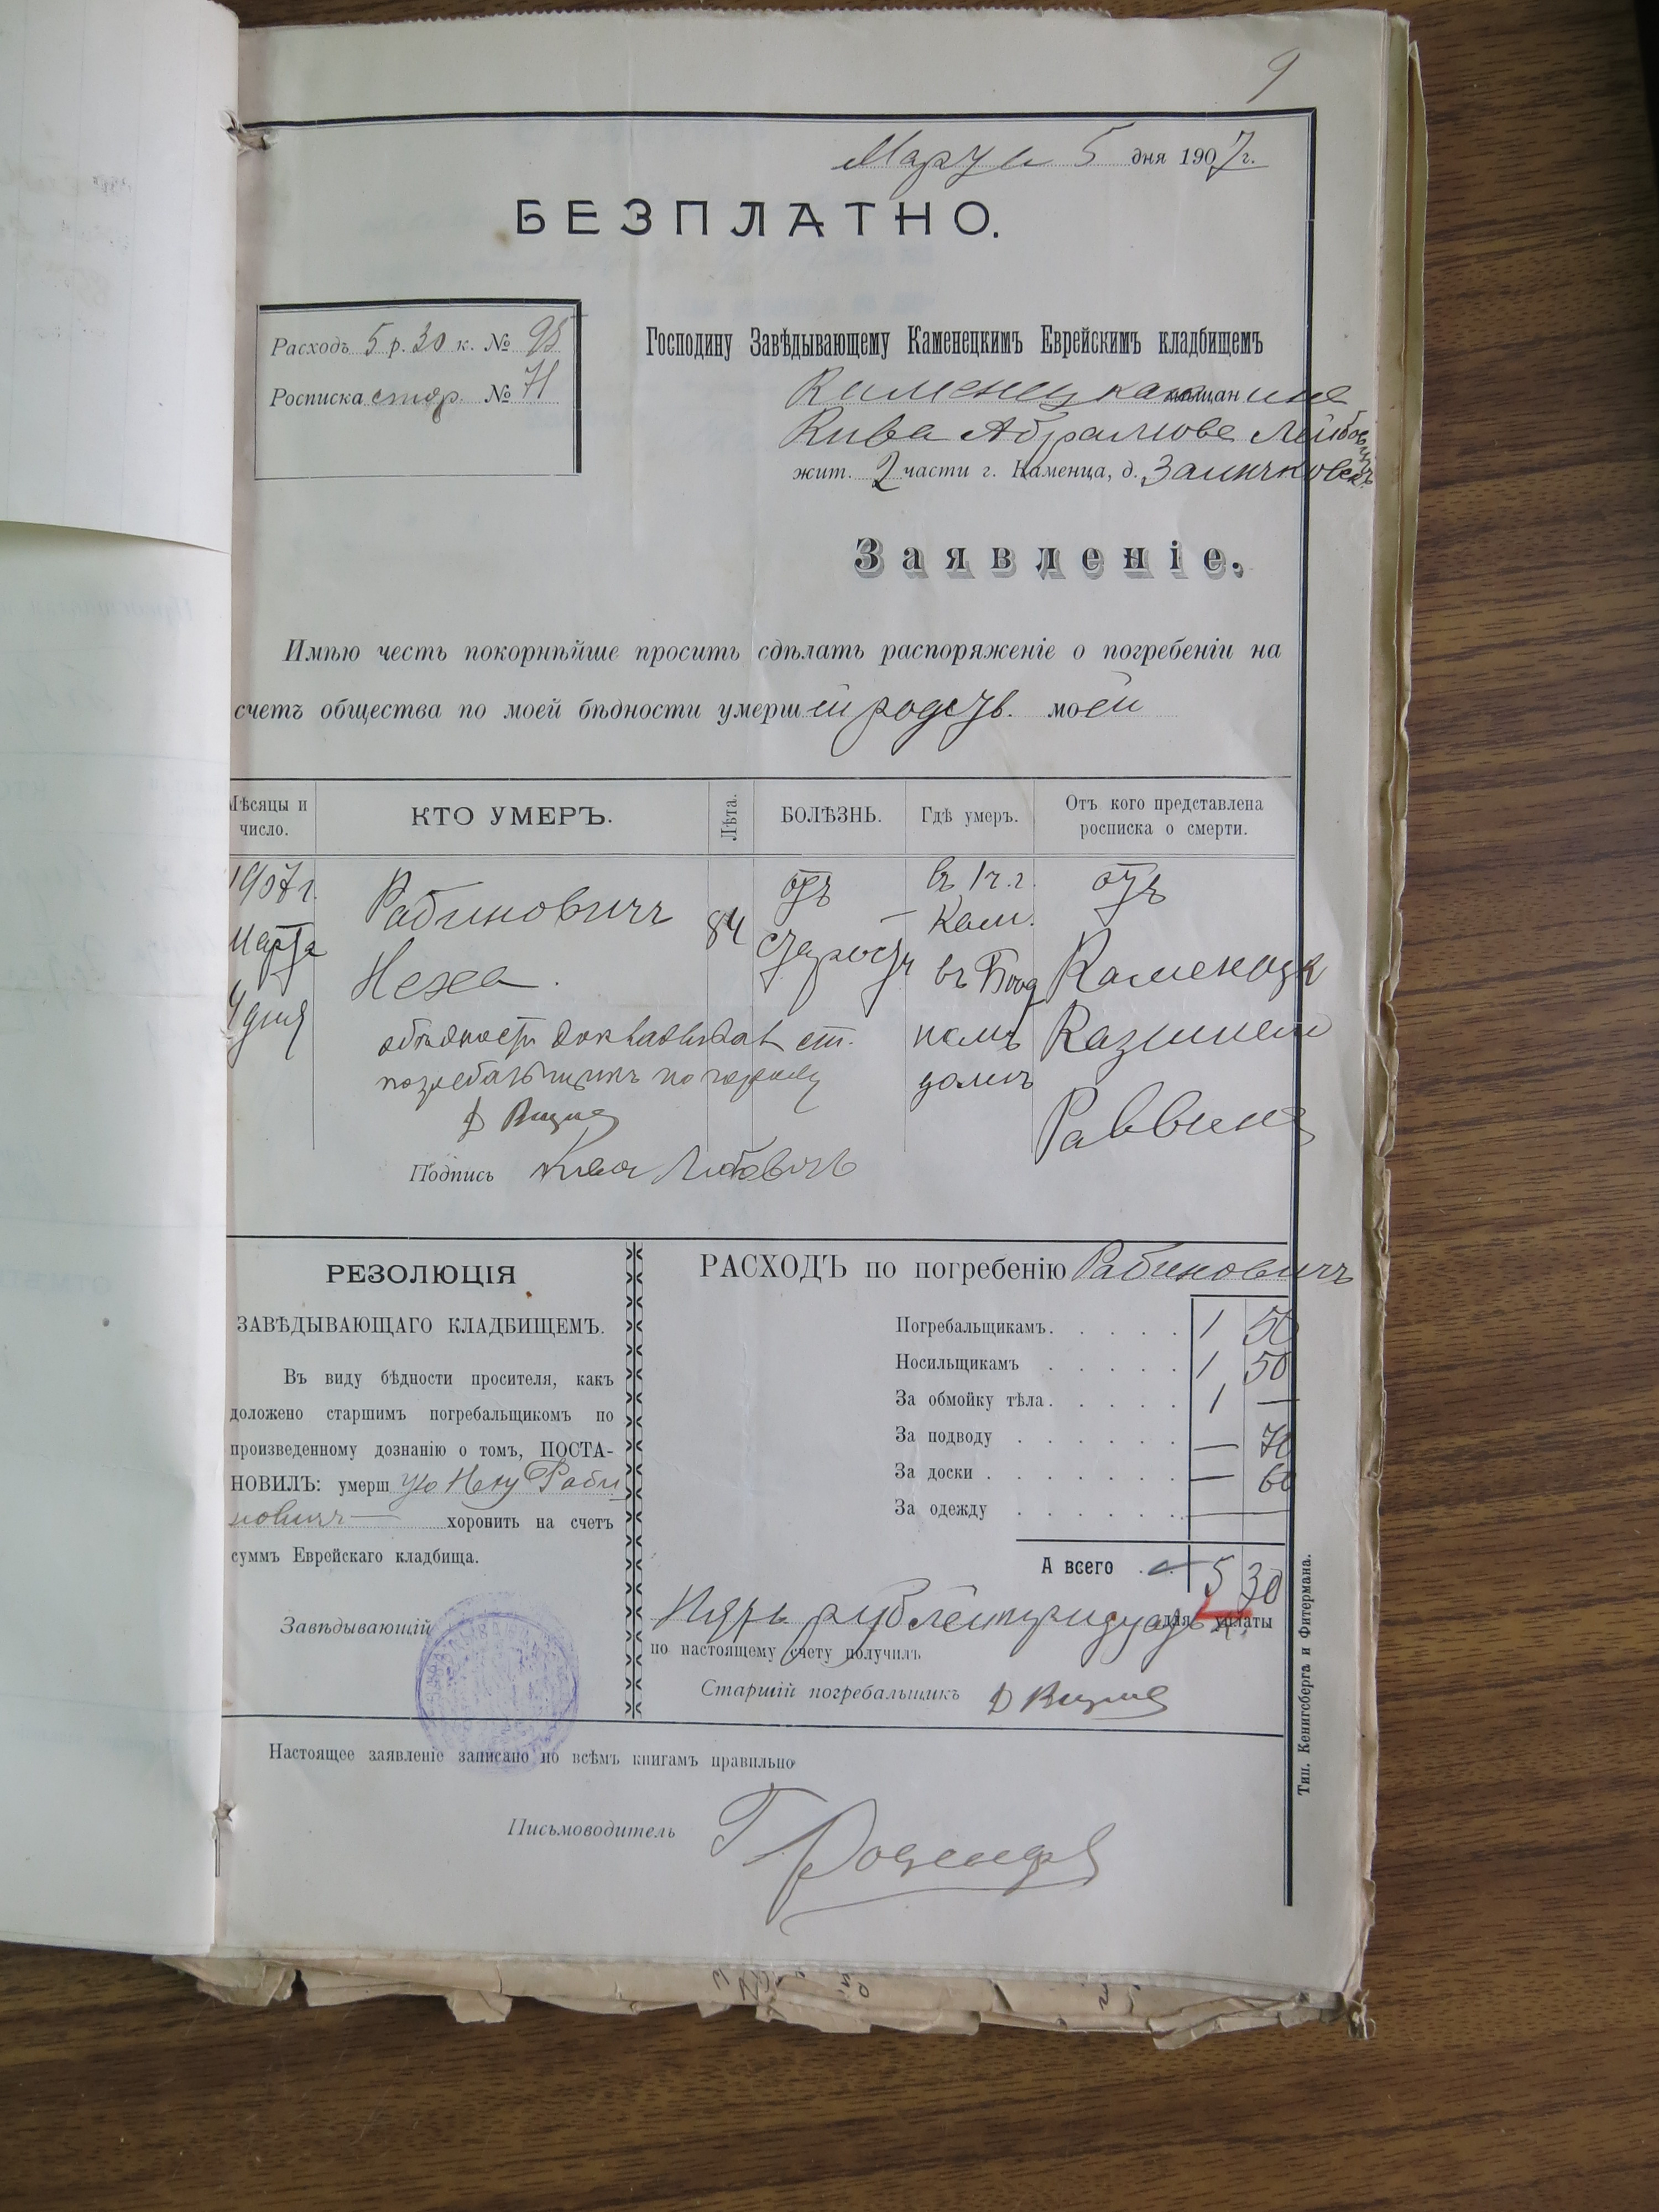 9
Марта 5 дня 1907 г.
БЕЗПЛАТНО.
Расходъ 5 р. 30 к. № 95
Росписка стор. № 71
Господину Завѣдывающему Каменецкимъ Еврейскимъ кладбищемъ
Каменецкаго мѣщанина
Кива Абрамова Лейбовичъ
жит. 2 части г. Каменца, д.
Заявленіе.
Имѣю честь покорнѣйше просить сдѣлать распоряженіе о погребеніи на
счетъ общества по моей бѣдности умершей родств. моей
Мѣсяцы и число.
КТО УМЕРЪ.
Лѣта.
БОЛѢЗНЬ.
Гдѣ умеръ.
Отъ кого представлена росписка о смерти.
1907 г. Марта 4 дня
Рабиновичъ Неха.
84
отъ старости
въ 1 ч. г. Кам. въ домъ
отъ Каменецк Казеннаго Раввина
погребальщикъ
Подпись Кива Лейбовичъ
РЕЗОЛЮЦІЯ
ЗАВѢДЫВАЮЩАГО КЛАДБИЩЕМЪ.
Въ виду бѣдности просителя, какъ
доложено старшимъ погребальщикомъ по
произведенному дознанію о томъ, ПОСТА-
НОВИЛЪ: умершую Неху Раби
новичъ хоронить на счетъ
суммъ Еврейскаго кладбища.
Завѣдывающій
РАСХОДЪ по погребенію Рабиновичъ
Погребальщикамъ. . . . . 1 50
Носильщикамъ . . . . . 1 50
За обмойку тѣла. . . . . 1 —
За подводу . . . . . . — 70
За доски . . . . . . . — 60
За одежду . . . . . . —
А всего . . 5 30
Пять рублей тридцать к. для уплаты
по настоящему счету получилъ
Старшій погребальщикъ
Настоящее заявленіе записано по всѣмъ книгамъ правильно
Письмоводитель
Тип. Кенигсберга и Фитермана.